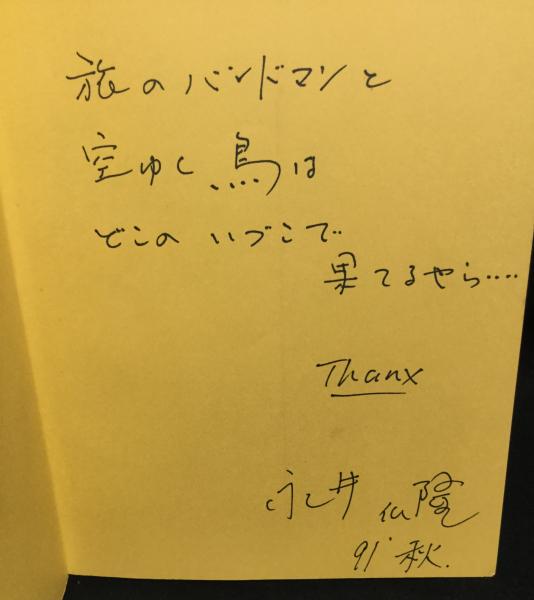 旅のバンドマンと
空ゆく鳥は
どこのいづこで
果てるやら....
Thanx
永井 隆
91' 秋.